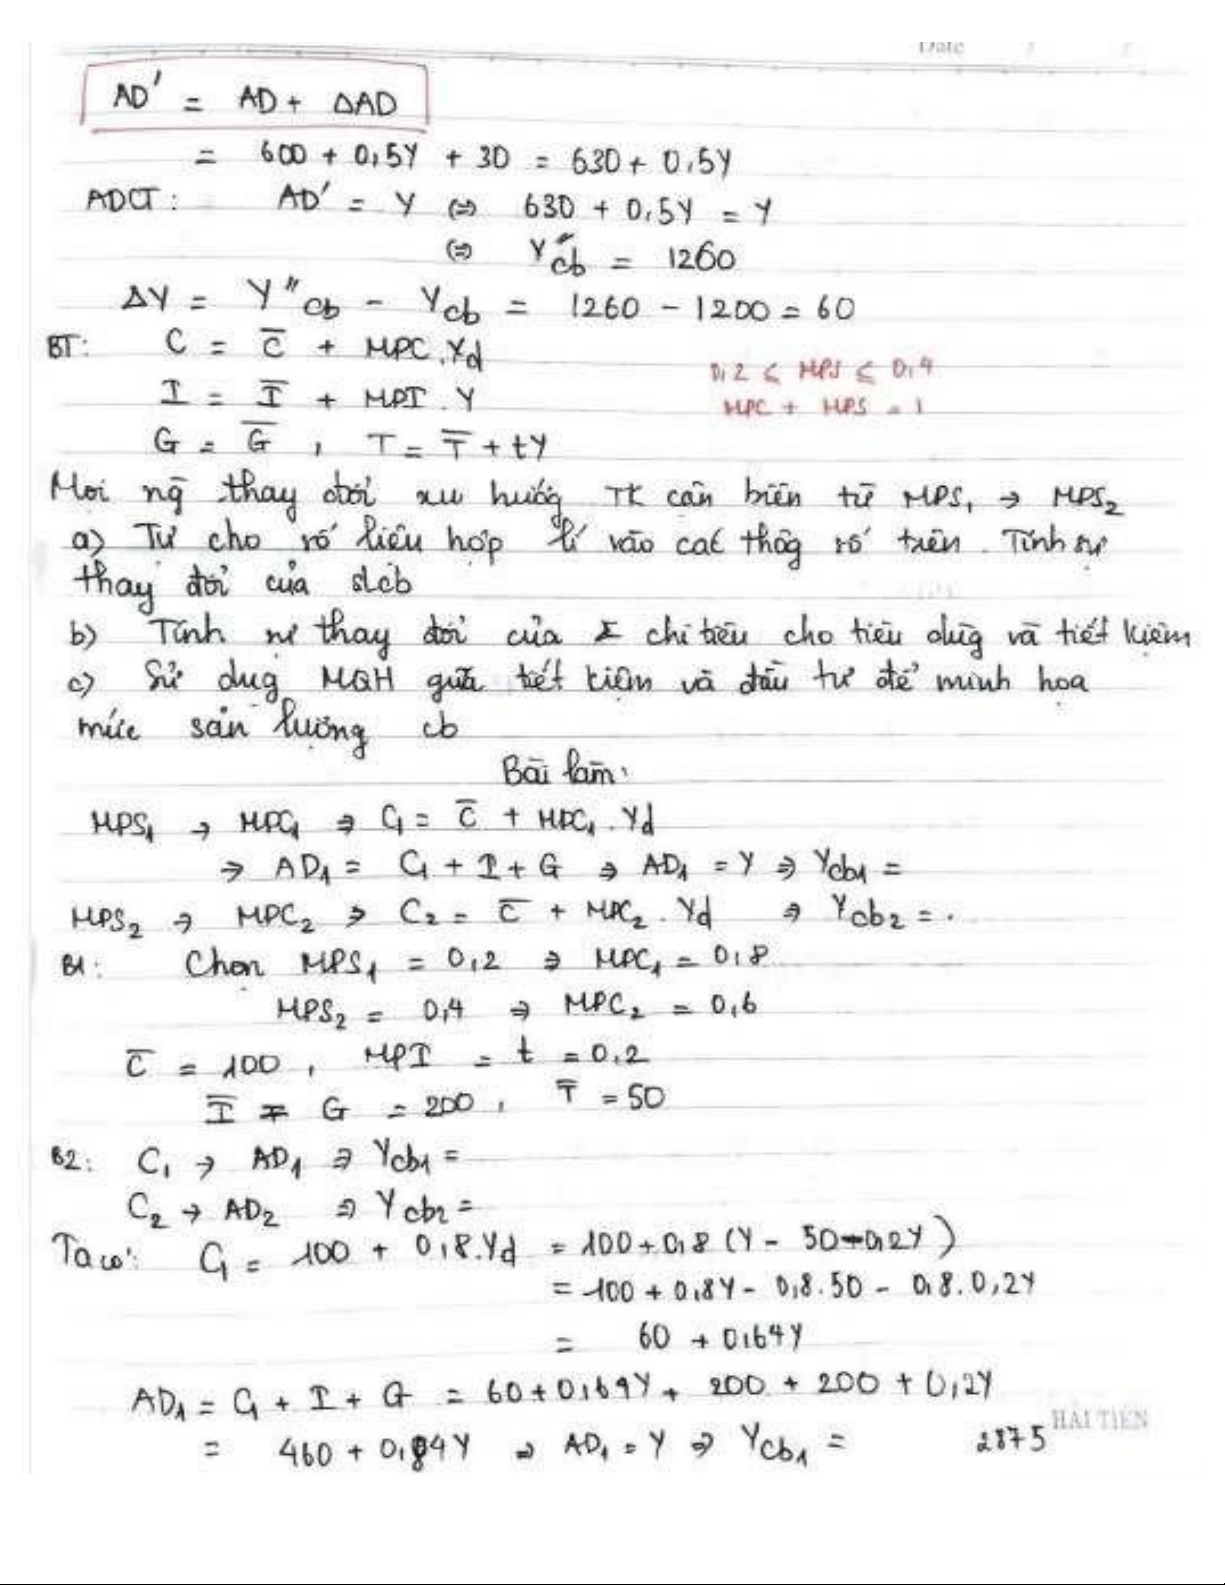 Date / /
AD' = AD + ΔAD
= 600 + 0,5Y + 30 = 630 + 0,5Y
ADCT : AD' = Y ⇔ 630 + 0,5Y = Y
⇔ Y"cb = 1260
ΔY = Y"cb - Ycb = 1260 - 1200 = 60
BT: C = C̅ + MPC.Yd
0,2 ≤ MPS ≤ 0,4
I = I̅ + MPI . Y
MPC + MPS = 1
G = G̅ , T = T̅ + tY
Mọi ng̃ thay đổi xu hướg TK cận biên từ MPS₁ → MPS₂
a) Tự cho số liệu hợp lí vào các thôg số trên. Tính sự
thay đổi của slcb
b) Tính sự thay đổi của Σ chi tiêu cho tiêu dùg và tiết kiệm
c) Sử dụg MQH giữa tiết kiệm và đầu tư để minh họa
mức sản lượng cb
Bài làm:
MPS₁ → MPC₁ ⇒ C₁ = C̅ + MPC₁ . Yd
⇒ AD₁ = C₁ + I + G ⇒ AD₁ = Y ⇒ Ycb₁ =
MPS₂ → MPC₂ ⇒ C₂ = C̅ + MPC₂ . Yd ⇒ Ycb₂ = .
B1: Chọn MPS₁ = 0,2 ⇒ MPC₁ = 0,8
MPS₂ = 0,4 ⇒ MPC₂ = 0,6
C̅ = 100 , MPI = t = 0.2
I̅ = G = 200 , T̅ = 50
B2: C₁ → AD₁ ⇒ Ycb₁ =
C₂ → AD₂ ⇒ Ycb₂ =
Ta có: C₁ = 100 + 0,8.Yd = 100 + 0,8 (Y - 50 - 0,2Y)
= 100 + 0,8Y - 0,8.50 - 0,8.0,2Y
= 60 + 0,64Y
AD₁ = C₁ + I + G = 60 + 0,64Y + 200 + 200 + 0,2Y
HẢI TIẾN
= 460 + 0,84Y ⇒ AD₁ = Y ⇒ Ycb₁ = 2875